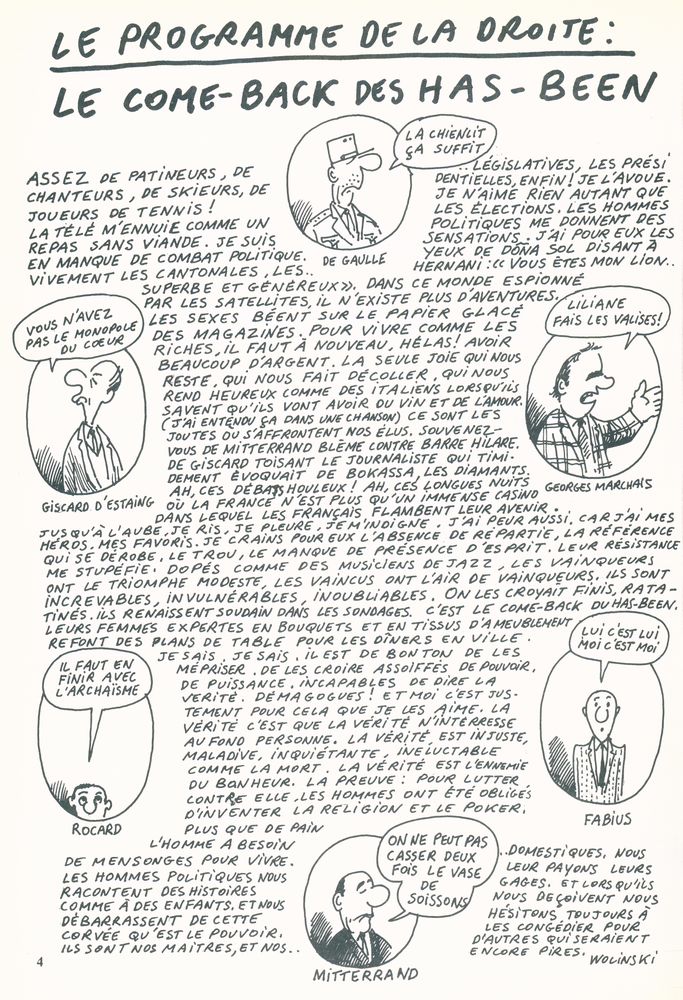 LE PROGRAMME DE LA DROITE:
LE COME-BACK DES HAS-BEEN
LA CHIENLIT
ÇA SUFFIT
DE GAULLE
ASSEZ DE PATINEURS, DE
CHANTEURS, DE SKIEURS, DE
JOUEURS DE TENNIS!
LA TÉLÉ M'ENNUIE COMME UN
REPAS SANS VIANDE. JE SUIS
EN MANQUE DE COMBAT POLITIQUE.
VIVEMENT LES CANTONALES, LES..
..LÉGISLATIVES, LES PRÉSI
DENTIELLES, ENFIN! JE L'AVOUE.
JE N'AIME RIEN AUTANT QUE
LES ÉLECTIONS. LES HOMMES
POLITIQUES ME DONNENT DES
SENSATIONS. J'AI POUR EUX LES
YEUX DE DOÑA SOL DISANT À
HERNANI: «VOUS ÊTES MON LION..
SUPERBE ET GÉNÉREUX». DANS CE MONDE ESPIONNÉ
PAR LES SATELLITES, IL N'EXISTE PLUS D'AVENTURES.
LES SEXES BÉENT SUR LE PAPIER GLACÉ
DES MAGAZINES. POUR VIVRE COMME LES
RICHES, IL FAUT À NOUVEAU, HÉLAS! AVOIR
BEAUCOUP D'ARGENT. LA SEULE JOIE QUI NOUS
RESTE, QUI NOUS FAIT DÉCOLLER, QUI NOUS
REND HEUREUX COMME DES ITALIENS LORSQU'ILS
SAVENT QU'ILS VONT AVOIR DU VIN ET DE L'AMOUR.
(J'AI ENTENDU ÇA DANS UNE CHANSON) CE SONT LES
JOUTES OÙ S'AFFRONTENT NOS ÉLUS. SOUVENEZ-
VOUS DE MITTERRAND BLÊME CONTRE BARRE HILARE.
DE GISCARD TOISANT LE JOURNALISTE QUI TIMI-
DEMENT ÉVOQUAIT DE BOKASSA, LES DIAMANTS.
AH, CES DÉBATS HOULEUX! AH, CES LONGUES NUITS
OÙ LA FRANCE N'EST PLUS QU'UN IMMENSE CASINO
DANS LEQUEL LES FRANÇAIS FLAMBENT LEUR AVENIR.
VOUS N'AVEZ
PAS LE MONOPOLE
DU COEUR
GISCARD D'ESTAING
LILIANE
FAIS LES VALISES!
GEORGES MARCHAIS
JUSQU'À L'AUBE, JE RIS, JE PLEURE, JE M'INDIGNE. J'AI PEUR AUSSI, CAR J'AI MES
HÉROS. MES FAVORIS. JE CRAINS POUR EUX L'ABSENCE DE RÉPARTIE, LA RÉFÉRENCE
QUI SE DÉROBE, LE TROU, LE MANQUE DE PRÉSENCE D'ESPRIT. LEUR RÉSISTANCE
ME STUPÉFIE. DOPÉS COMME DES MUSICIENS DE JAZZ, LES VAINQUEURS
ONT LE TRIOMPHE MODESTE, LES VAINCUS ONT L'AIR DE VAINQUEURS. ILS SONT
INCREVABLES, INVULNÉRABLES, INOUBLIABLES. ON LES CROYAIT FINIS, RATA-
TINÉS. ILS RENAISSENT SOUDAIN DANS LES SONDAGES. C'EST LE COME-BACK DU HAS-BEEN.
LEURS FEMMES EXPERTES EN BOUQUETS ET EN TISSUS D'AMEUBLEMENT
REFONT DES PLANS DE TABLE POUR LES DÎNERS EN VILLE.
JE SAIS. JE SAIS. IL EST DE BON TON DE LES
MÉPRISER. DE LES CROIRE ASSOIFFÉS DE POUVOIR,
DE PUISSANCE, INCAPABLES DE DIRE LA
VERITÉ. DÉMAGOGUES! ET MOI C'EST JUS-
TEMENT POUR CELA QUE JE LES AIME. LA
VÉRITÉ C'EST QUE LA VÉRITÉ N'INTÉRRESSE
AU FOND PERSONNE. LA VÉRITÉ, EST INJUSTE,
MALADIVE, INQUIÉTANTE, INELUCTABLE
COMME LA MORT. LA VÉRITÉ EST L'ENNEMIE
DU BONHEUR. LA PREUVE: POUR LUTTER
CONTRE ELLE, LES HOMMES ONT ÉTÉ OBLIGÉS
D'INVENTER LA RELIGION ET LE POKER.
PLUS QUE DE PAIN
IL FAUT EN
FINIR AVEC
L'ARCHAÏSME
ROCARD
LUI C'EST LUI
MOI C'EST MOI
FABIUS
L'HOMME A BESOIN
DE MENSONGES POUR VIVRE.
LES HOMMES POLITIQUES NOUS
RACONTENT DES HISTOIRES
COMME À DES ENFANTS. ET NOUS
DÉBARRASSENT DE CETTE
CORVÉE QU'EST LE POUVOIR.
ILS SONT NOS MAITRES, ET NOS..
ON NE PEUT PAS
CASSER DEUX
FOIS LE VASE
DE
SOISSONS
MITTERRAND
..DOMESTIQUES. NOUS
LEUR PAYONS LEURS
GAGES. ET LORSQU'ILS
NOUS DEÇOIVENT NOUS
HÉSITONS TOUJOURS À
LES CONGÉDIER POUR
D'AUTRES QUI SERAIENT
ENCORE PIRES.
WOLINSKI
4